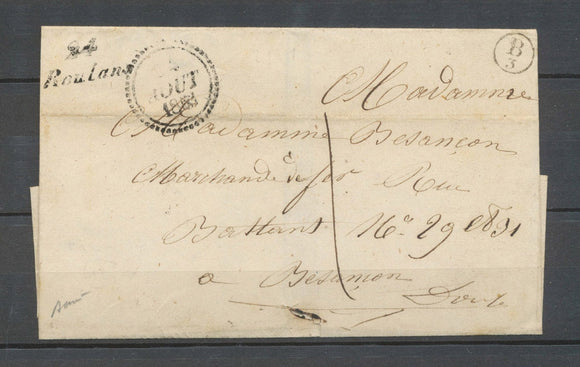 24
Roulans
AOUT
B
3
Madamme
Madamme Besançon
Marchande de fer Rue
Battant No 29 et 31
a Besançon
Doubs